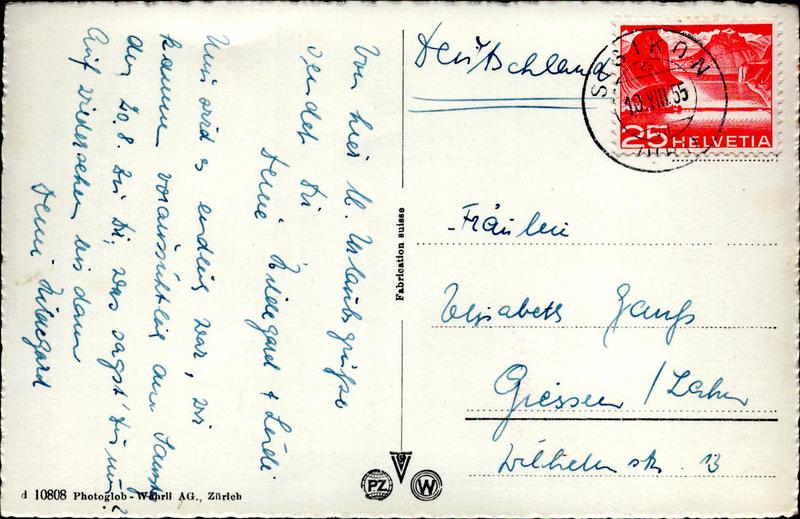 Von hier l. Urlaubsgrüße
sendet Dir
Deine Hildegard + Leidi
Nun wird's endlich war, wir
kommen voraussichtlich am Samstag
den 20.8. zu Dir, was sagst Du nun?
Auf Wiedersehen bis dann
Deine Hildegard
Deutschland
SISIKON
10.VIII.55
25 HELVETIA
Fräulein
Elisabeth
Giessen / Lahn
Wilhelmstr. 13
Fabrication suisse
PZ
W
d 10808 Photoglob-Wehrli AG., Zürich